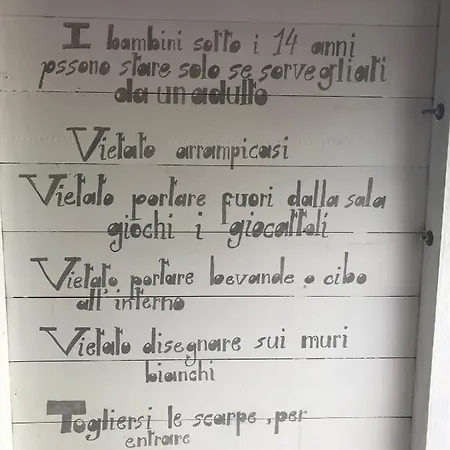 I bambini sotto i 14 anni
pssono stare solo se sorvegliati
da un adulto
Vietato arrampicasi
Vietato portare fuori dalla sala
giochi i giocattoli
Vietato portare bevande o cibo
all'interno
Vietato disegnare sui muri
bianchi
Togliersi le scarpe, per
entrare